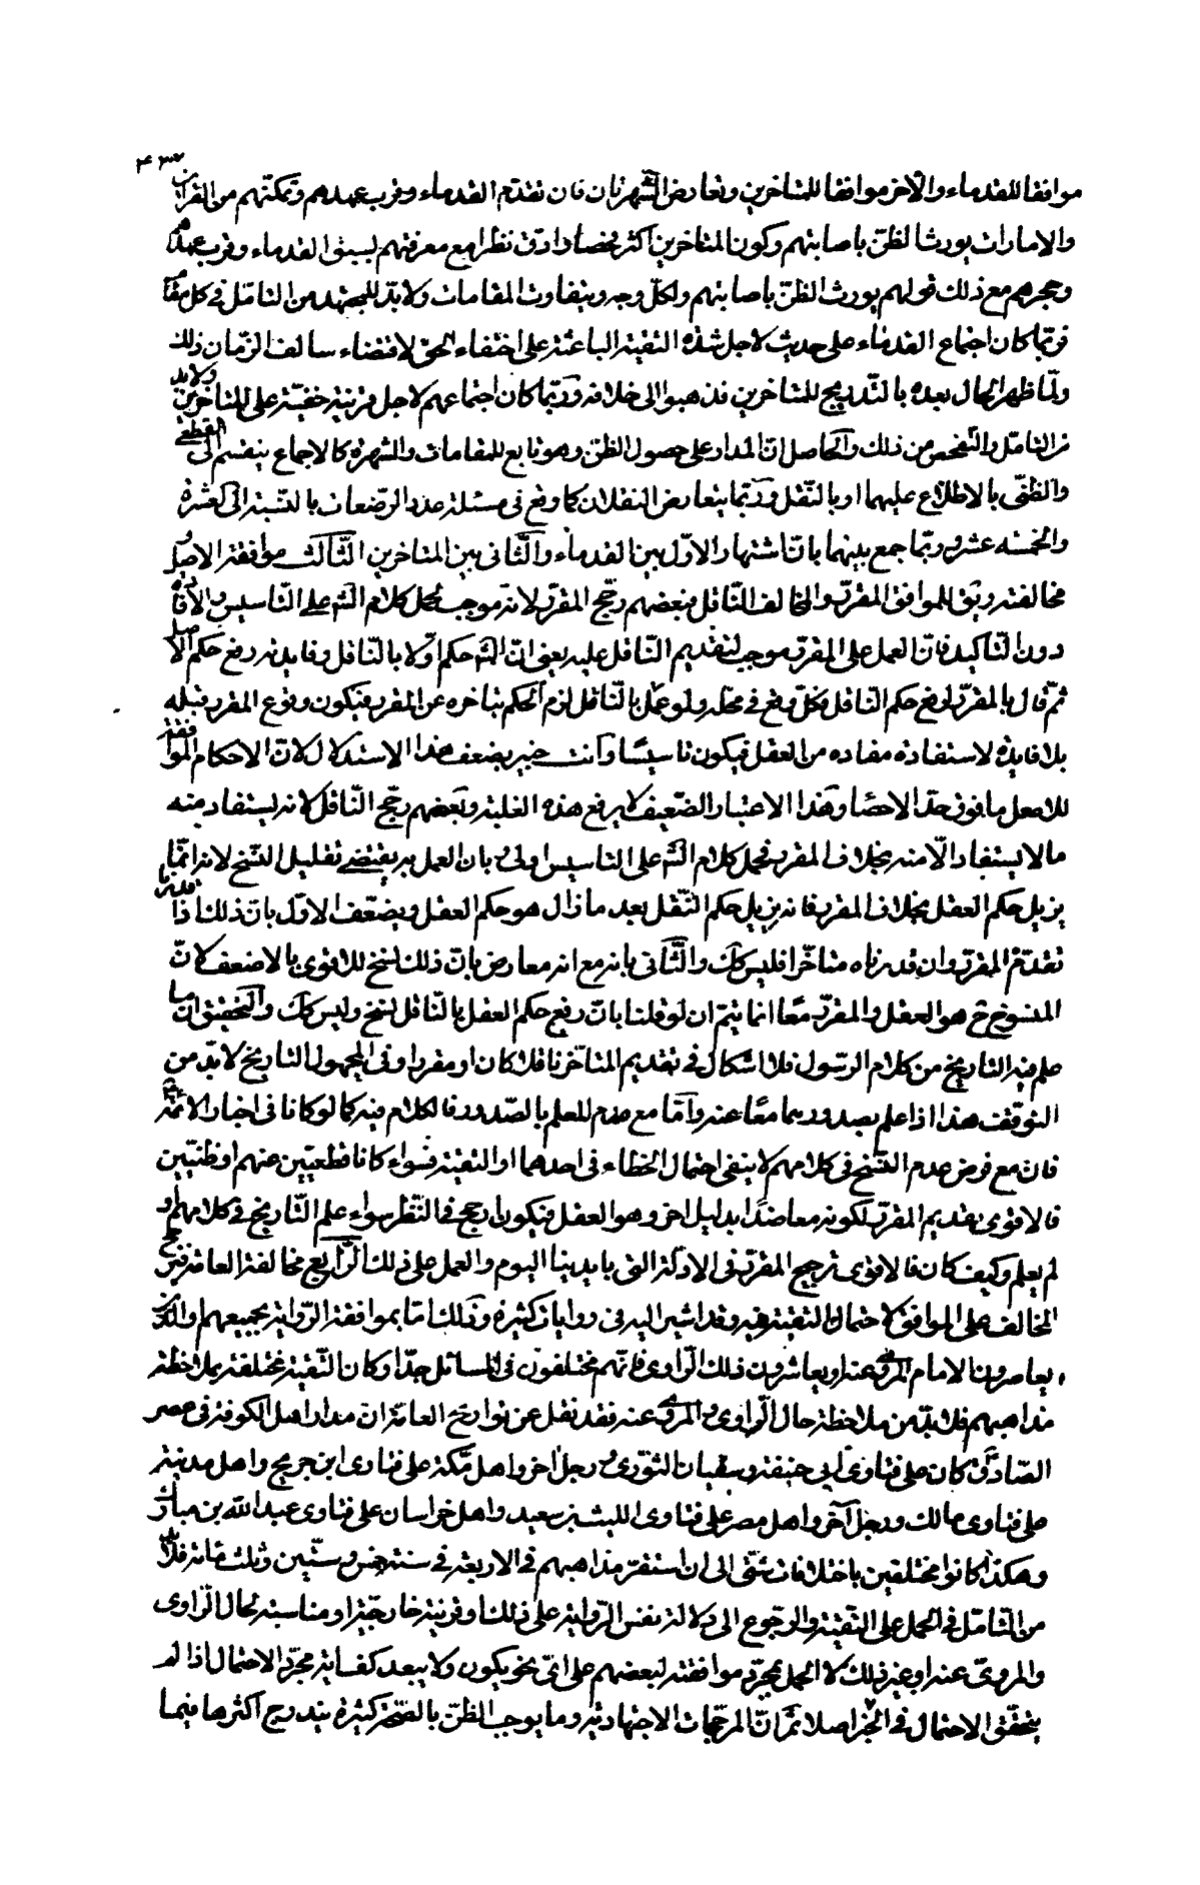 ۴۳۷
موافقا للقدماء والآخر موافقا للمتاخرين وتعارض الشهرتان فان تقدم القدماء وقرب عهدهم وتمكنهم من القراين
والامارات يورث الظن باصابتهم وكون المتاخرين اكثر فحصا وادق نظرا مع معرفتهم بسبق القدماء وقرب عهدهم
وهجرهم مع ذلك قولهم يورث الظن باصابتهم ولكل وجه ويتفاوت المقامات ولا بد للمجتهد من التامل في كل مقام
فربما كان اجتماع القدماء على حديث لاجل شدة التقية الباعثة على اختفاء الحق لاقتضاء سالف الزمان ذلك
ولما ظهر الحال بعده بالتدريج للمتاخرين فذهبوا الى خلافه وربما كان اجتماعهم لاجل قرينة خفية على المتاخرين ولابد
من التامل والتفحص من ذلك والحاصل ان المدار على حصول الظن وهو تابع للمقامات والشهرة كالاجماع ينقسم الى القطعي
والظني بالاطلاع عليهما او بالنقل وربما يتعارض النقلان كما وقع في مسئلة عدد الرضعات بالنسبة الى العشرة
والخمسة عشر وربما جمع بينهما بان اشتهار الاول بين القدماء والثاني بين المتاخرين الثالث موافقة الاصل و
مخالفته ويق للموافق المقرر والمخالف الناقل فبعضهم رجح المقرر لانه موجب لحمل كلام الشه على التاسيس والافادة
دون التاكيد فان العمل على المقرر موجب لتقديم الناقل عليه يعني ان الشه حكم اولا بالناقل وفايدته رفع حكم الاصل
ثم قال بالمقرر لرفع حكم الناقل فكل وقع في محله ولو عمل بالناقل لزم الحكم بتاخره عن المقرر فيكون وقوع المقرر قبله
بلا فايدة لاستفادة مفاده من العقل فيكون تاسيسا وانت خبير بضعف هذا الاستدلال لان الاحكام الموافقة
للاصل مما فوق حد الاحصاء وهذا الاعتبار الضعيف لا يرفع هذه الغلبة وبعضهم رجح الناقل لانه يستفاد منه
ما لا يستفاد الا منه بخلاف المقرر فحمل كلام الشه على التاسيس اولى وبان العمل به يقتضي تقليل النسخ لانه انما
يزيل حكم العقل بخلاف المقرر فانه يزيل حكم النقل بعد ما زال هو حكم العقل ويضعف الاول بان ذلك اذا قدرنا
تقدم المقرر وان قدرناه متاخرا فليس كك والثاني بانه مع انه معارض بان ذلك نسخ للاقوى بالاضعف لان
المنسوخ ح هو العقل والمقرر معا انما يتم ان لو قلنا بان رفع حكم العقل بالناقل نسخ وليس كك والتحقيق ان ما
علم فيه التاريخ من كلام الرسول فلا اشكال في تقديم المتاخر ناقلا كان او مقررا وفي المجهول التاريخ لا بد من
التوقف هذا اذا علم بصدورهما معا عنه واما مع عدم العلم بالصدور فالكلام فيه كما لو كانا في اخبار الائمة
فان مع فرض عدم النسخ في كلامهم لا ينفي احتمال الخطاء في احدهما او التقية فسواء كانا قطعيين عنهم او ظنيين
فالاقوى تقديم المقرر لكونه معاضدا بدليل اخر وهو العقل فيكون ارجح في النظر سواء علم التاريخ في كلامهم او
لم يعلم وكيف كان فالاقوى ترجيح المقرر في الادلة التي بايدينا اليوم والعمل على ذلك الرابع مخالفة العامة فيرجح
المخالف على الموافق لاحتمال التقية فيه وقد اشير اليه في روايات كثيرة وذلك اما بموافقة الرواية لجميعهم والذين
يعاصرون الامام المروي عنه او يعاشرون ذلك الراوي فانهم مختلفون في المسائل جدا وكان التقية مختلفة بملاحظة
مذاهبهم فلا بد من ملاحظة حال الراوي والمروي عنه فقد نقل عن تواريخ العامة ان مدار اهل الكوفة في عصر
الصادق كان على فتاوى ابي حنيفة وسفيان الثوري ورجل اخر واهل مكة على فتاوى ابن جريح واهل مدينة
على فتاوى مالك ورجل آخر واهل مصر على فتاوى الليث بن سعيد واهل خراسان على فتاوى عبد الله بن مبارك
وهكذا كانوا مختلفين باختلافات شتى الى ان استقر مذاهبهم في الاربعة في سنة خمس وستين وثلثمائة فلابد
من التامل في الحمل على التقية والرجوع الى دلالة نفس الرواية على ذلك او قرينة خارجية او مناسبته لحال الراوي
والمروي عنه او غير ذلك لا الحمل بمجرد موافقته لبعضهم على اي نحو يكون ولا يبعد كفاية مجرد الاحتمال اذا لم
يتحقق الاحتمال في الاخر اصلا ثم ان المرجحات الاجتهادية وما يوجب الظن بالصحة كثيرة يندرج اكثرها فيما